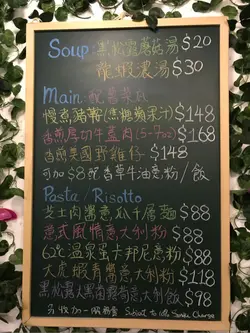 Soup: 黑松露蘑菇湯 $20
龍蝦濃湯 $30
Main: 配薯菜
慢煮豬鞍 (焦糖蘋果汁) $148
香煎厚切牛蓋肉 (5-7oz) $168
香焗美國野雞仔 $148
可加 $8 跟香草牛油意粉/飯
Pasta / Risotto
芝士肉醬意瓜千層麵 $88
意式風情意大利粉 $88
62°C 溫泉蛋卡邦尼意粉 $88
大虎蝦青醬意大利粉 $118
黑松露大黑菌露荀意大利飯 $98
另收加一服務費 Subject to 10% Service Charge